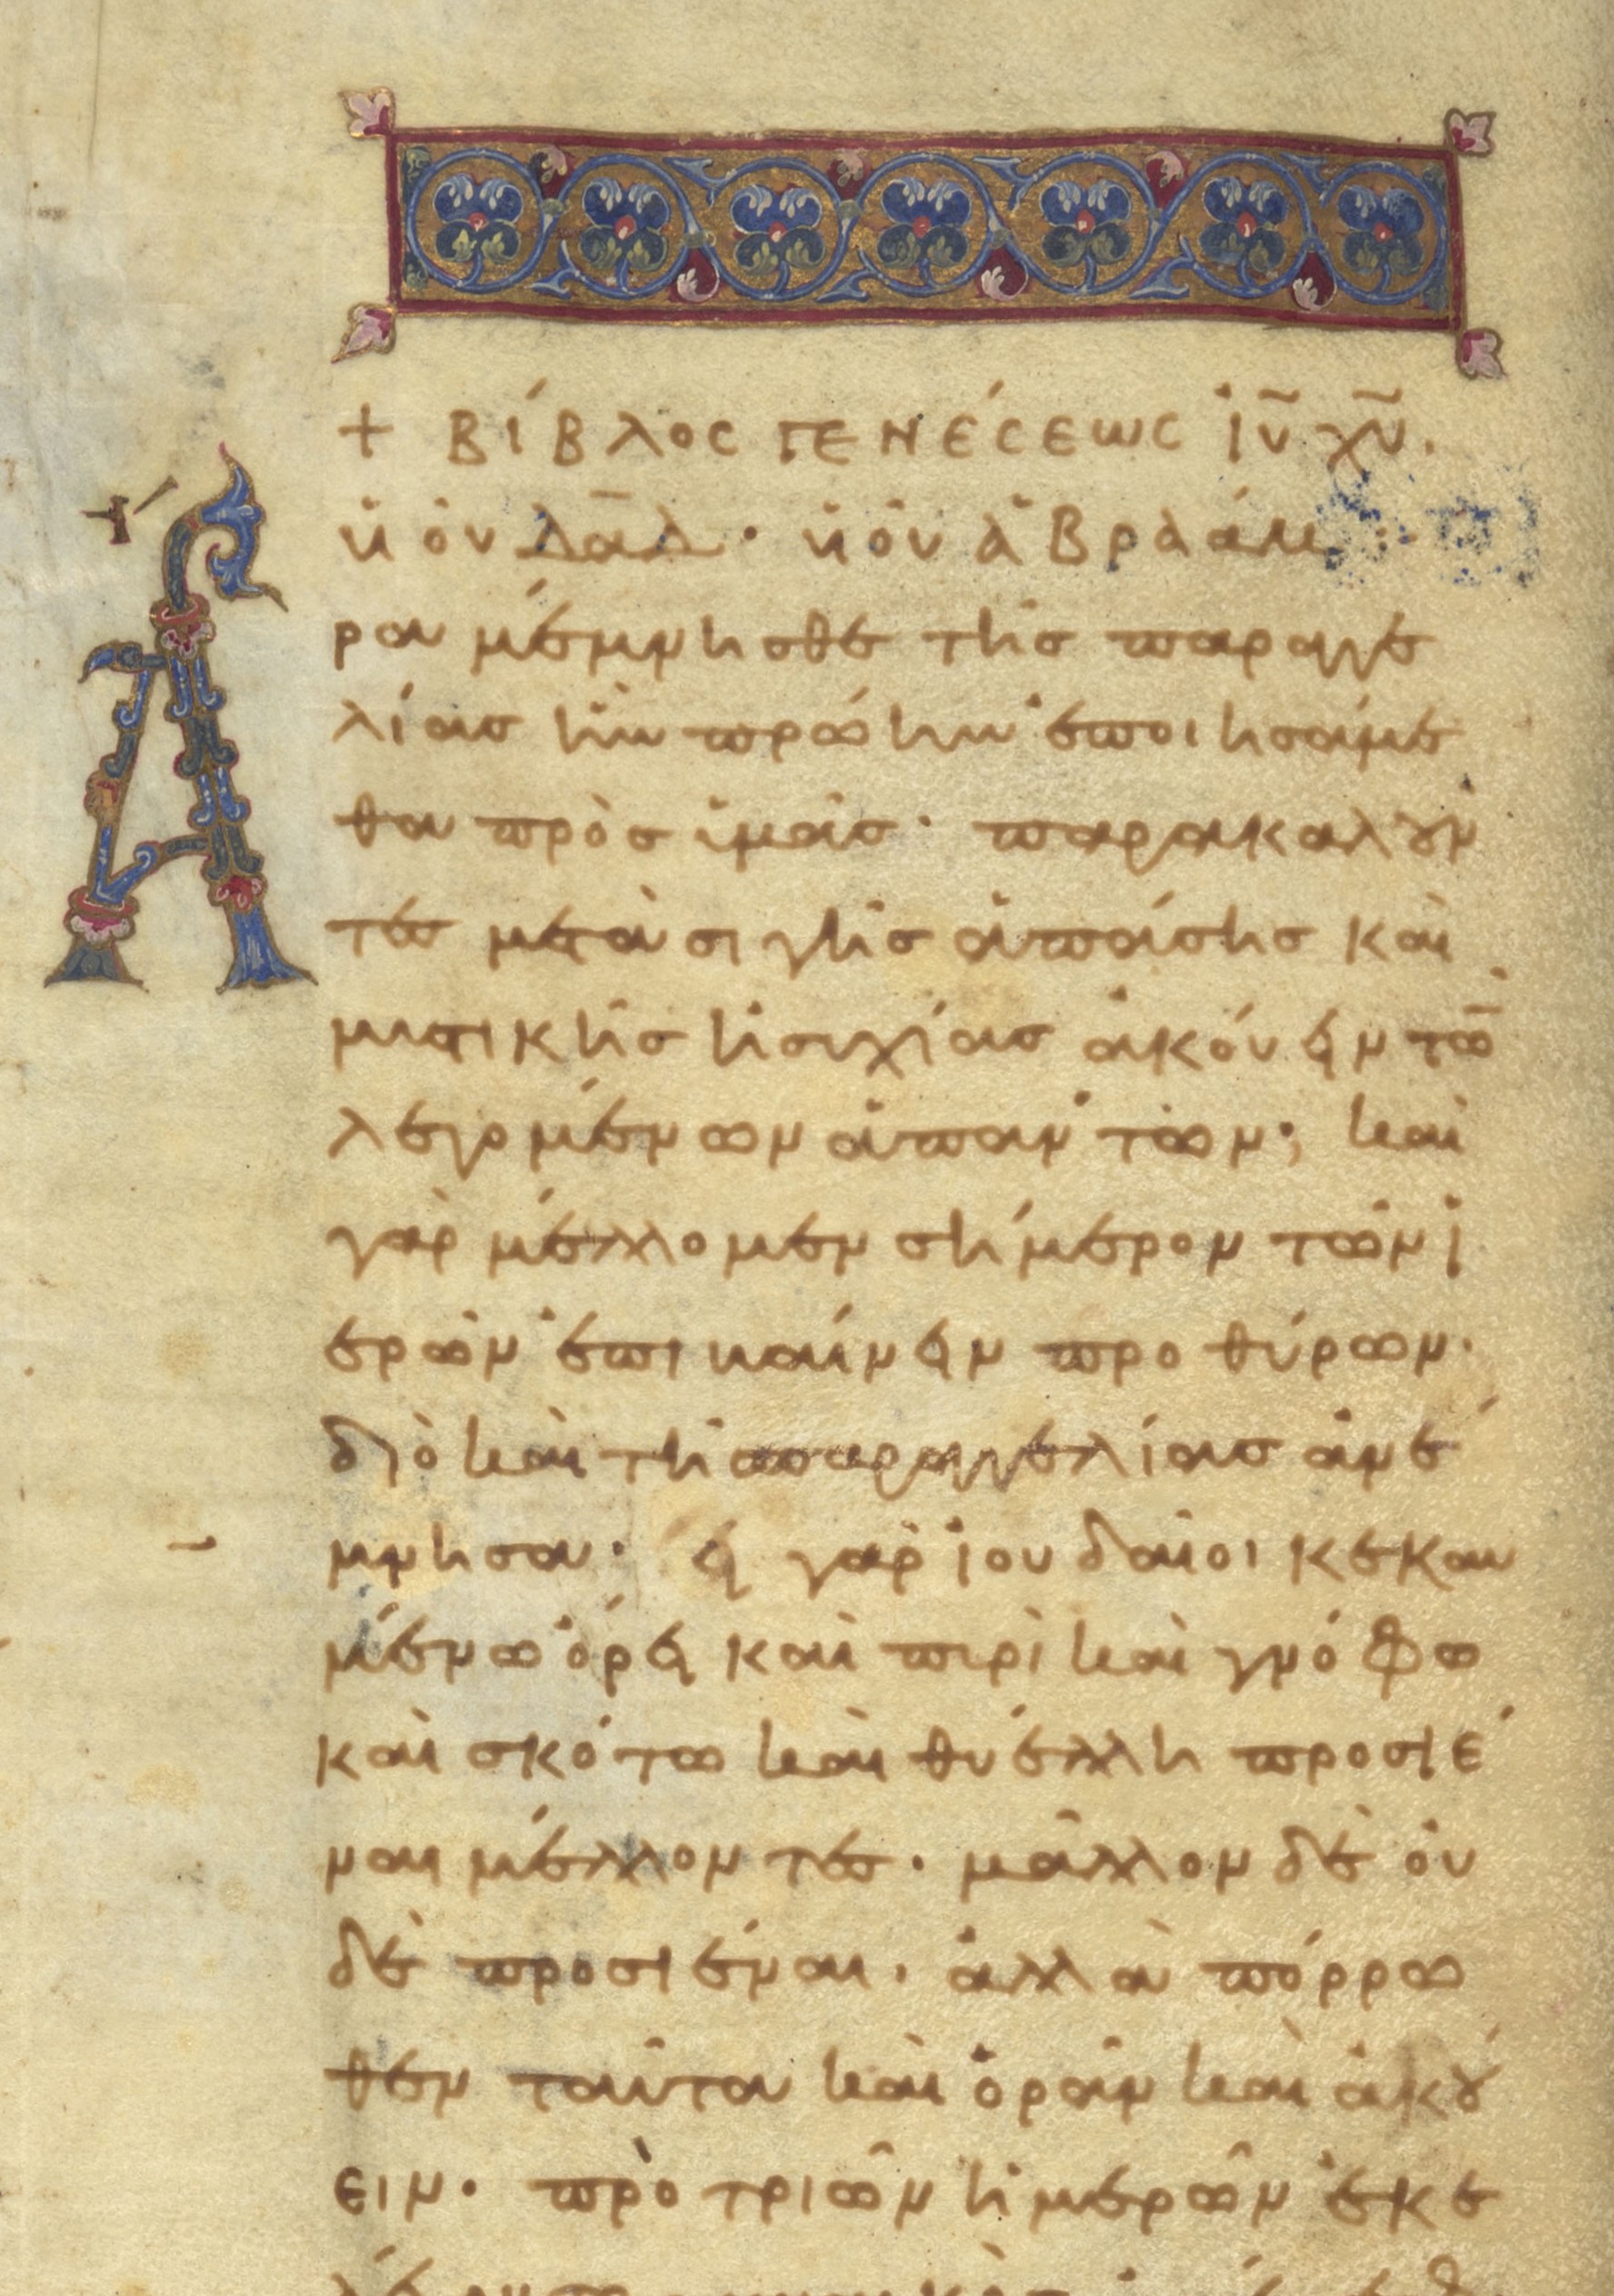 + ΒΊΒΛΟC ΓΕΝΈCΕΩC ἸῩ ΧῩ.
ὑιὸν ΔᾱΔ · ὑιοῦ ἈΒΡΑᾺΜ :·
ρα μέμνησθε τῆς παραγγε
λίας ἣν πρώην ἐποιησάμε
θα πρὸς ὑμᾶς · παρακαλοῦν
τες μετὰ σιγῆς ἁπάσης καὶ
μυστικῆς ἡσυχίας ἀκούειν τῶ̄
λεγομένων ἁπάντων· καὶ
γὰρ μέλλομεν σήμερον τῶν ἱ
ερῶν ἐπιβαίνειν προθύρων·
διὸ καὶ τῆς παραγγελίας ἀνέ
μνησα· εἰ γὰρ ἰουδαῖοι κεκαυ
μένω ὄρει καὶ πυρὶ καὶ γνόφω
καὶ σκότω καὶ θυέλλη προσιέ
ναι μέλλοντες · μᾶλλον δὲ οὐ
δὲ προσιέναι · ἀλλὰ πόρρω
θεν ταῦτα καὶ ὁρᾶν καὶ ἀκού
ειν · πρὸ τριῶν ἡμερῶν ἐκε